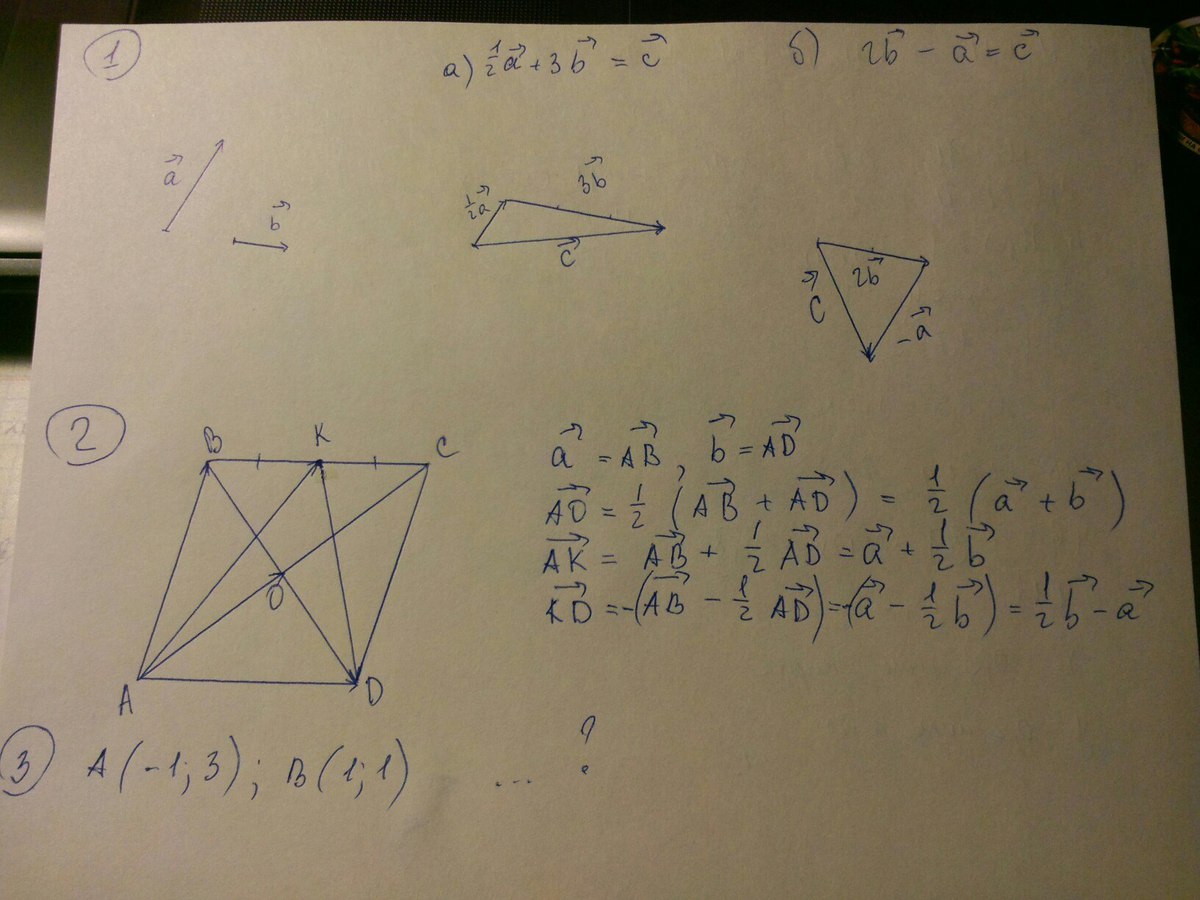 1
а) ½a⃗ + 3b⃗ = c⃗
б) 2b⃗ - a⃗ = c⃗
a⃗
b⃗
½a⃗
3b⃗
c⃗
2b⃗
c⃗
-a⃗
2
B K C
O
A D
a⃗ = AB⃗, b⃗ = AD⃗
AO⃗ = ½ (AB⃗ + AD⃗) = ½ (a⃗ + b⃗)
AK⃗ = AB⃗ + ½ AD⃗ = a⃗ + ½ b⃗
KD⃗ = -(AB⃗ - ½ AD⃗) = -(a⃗ - ½ b⃗) = ½ b⃗ - a⃗
3 A(-1; 3); B(1; 1) ... ?